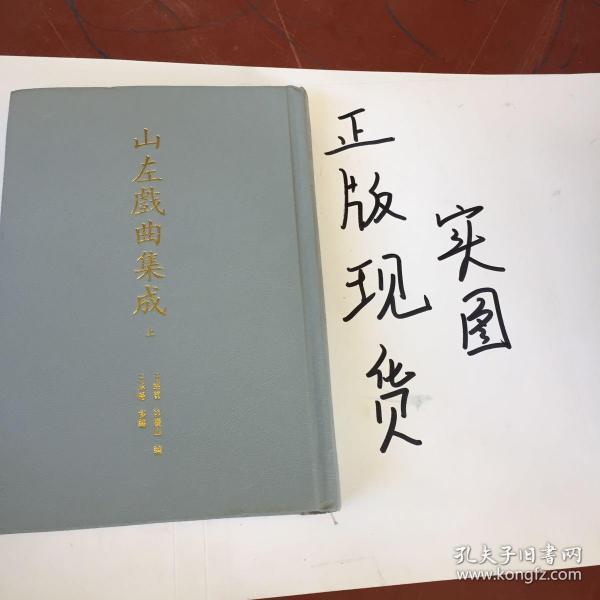 山左戲曲集成
上
正版现货
实图
孔夫子旧书网
www.kongfz.com